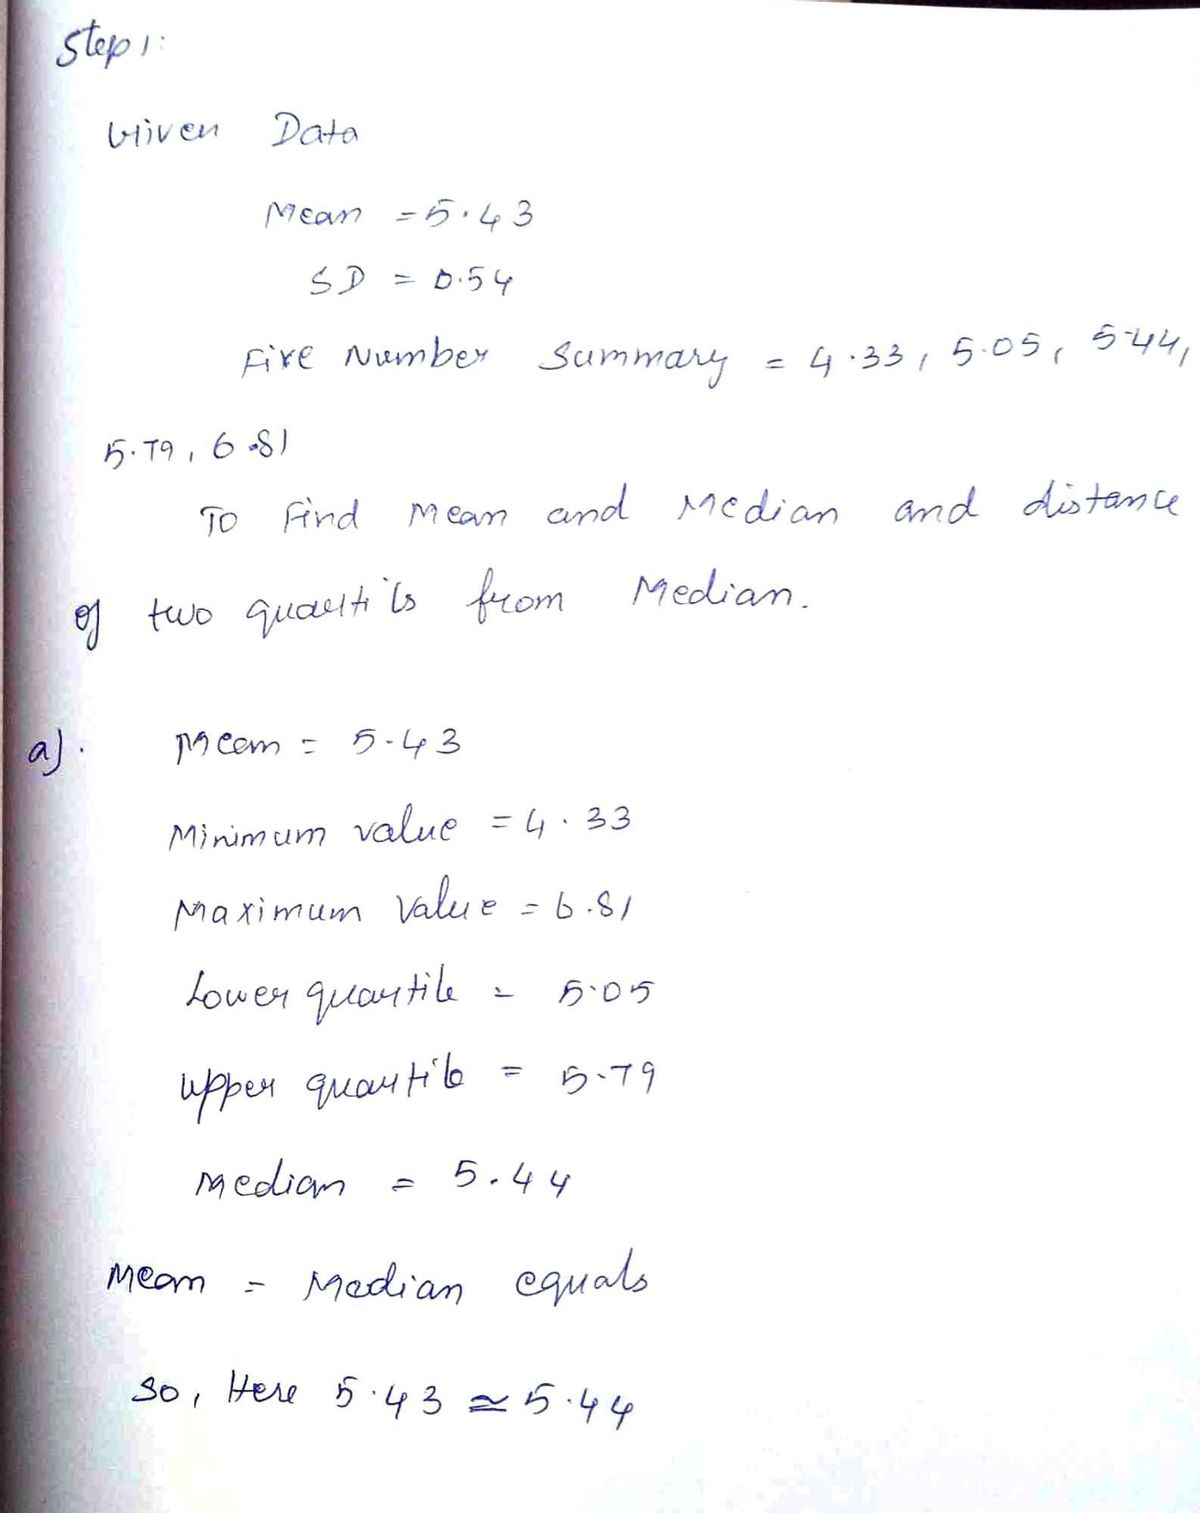 Step 1:
Given Data
Mean = 5.43
SD = 0.54
Five Number Summary = 4.33, 5.05, 5.44,
5.79, 6.81
To Find Mean and Median and distance
of two quartils from Median.
a). Mean = 5.43
Minimum value = 4.33
Maximum Value = 6.81
Lower quartile = 5.05
Upper quartile = 5.79
Median = 5.44
Mean = Median equals
So, Here 5.43 ≃ 5.44